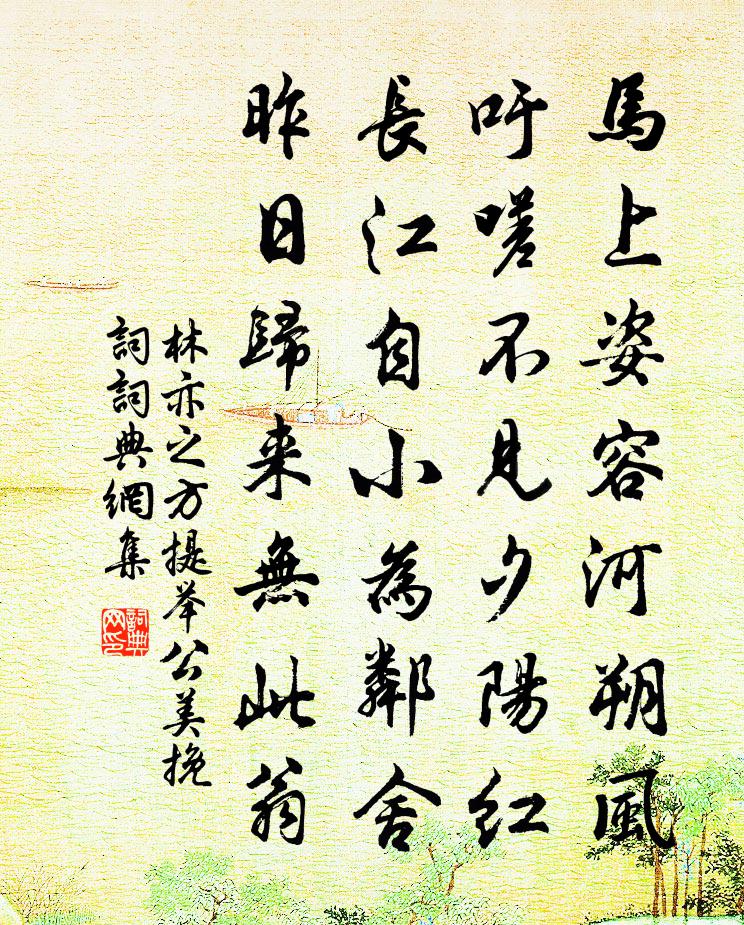 馬上姿容河朔風
吁嗟不見夕陽紅
長江自小為鄰舍
昨日歸来無此翁
林亦之方提举公美挽
詞詞典網集
詞典網印